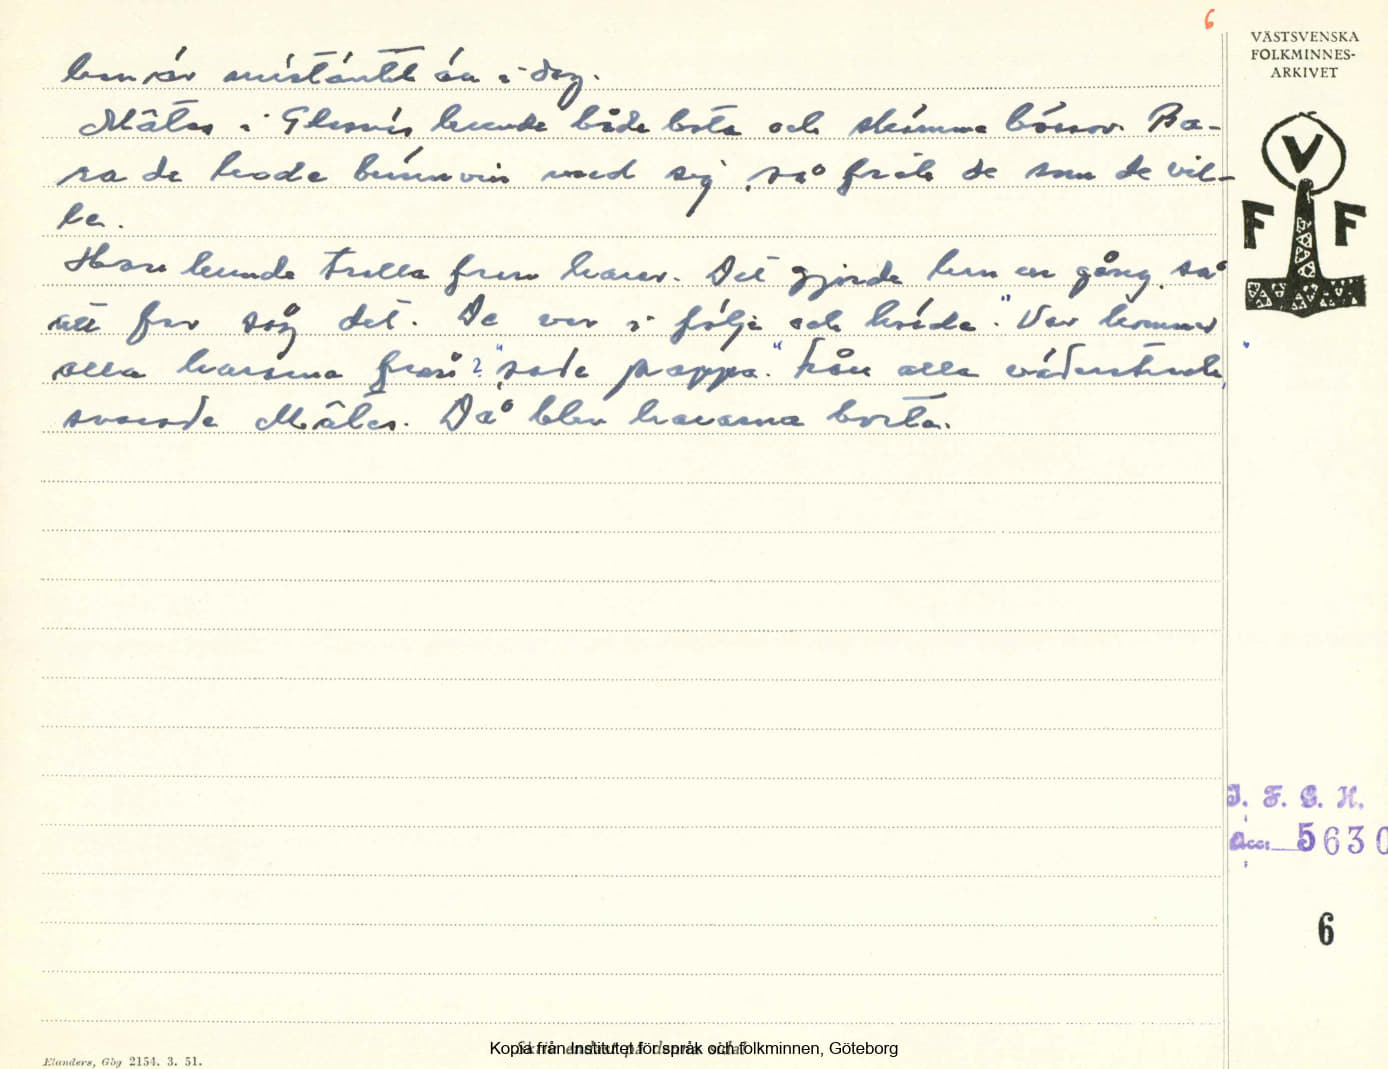 6
VÄSTSVENSKA
FOLKMINNES-
ARKIVET
V
F F
han är misstänkt än i dag.
Mâtes i Glasvis kunde både bota och skämma bössor. Ba-
ra de hade brännvin med sig, så fick de som de vil-
le.
Han kunde trolla fram harar. Det gjorde han en gång, så
att far såg det. De var i följe och körde. "Var kommer
alla hararna från?" sade pappa. "Från alla väderstreck",
svarade Mâtes. Då blev hararna borta.
I. F. G. H.
Acc: 5630
6
Skriv endast på denna sida!
Kopia från Institutet för språk och folkminnen, Göteborg
Elanders, Gbg 2154. 3. 51.